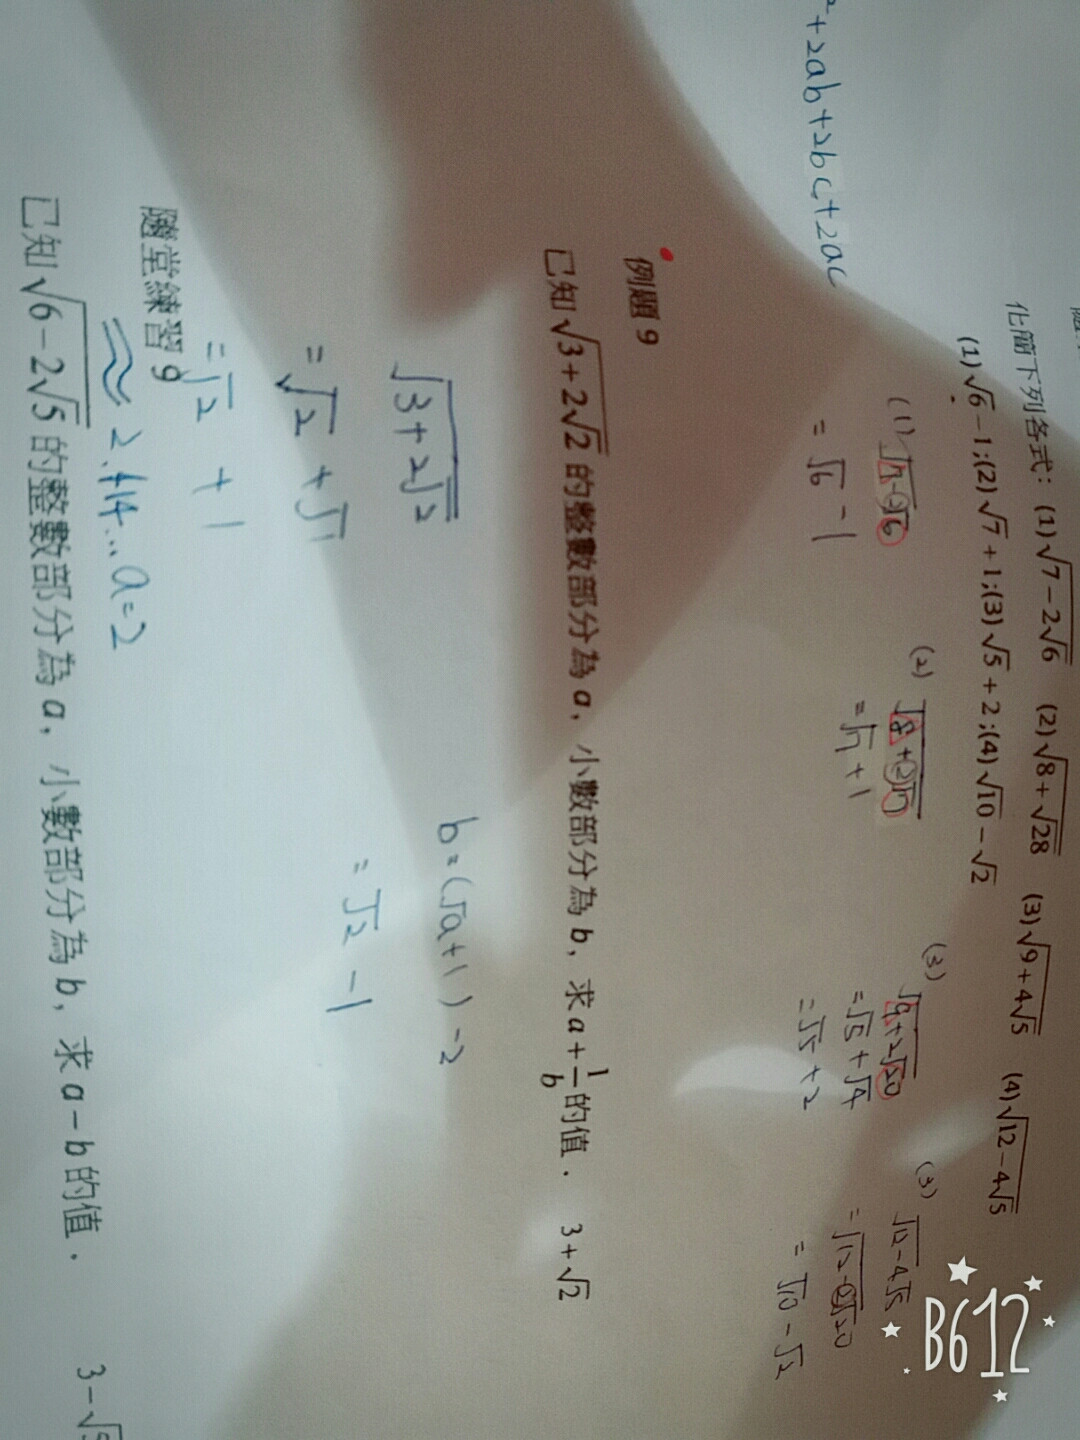 ²+2ab+2bc+2ac
化簡下列各式：(1)√(7−2√6) (2)√(8+√28) (3)√(9+4√5) (4)√(12−4√5)
(1)√6−1;(2)√7+1;(3)√5+2;(4)√10−√2
(1) √(7-2√6)
=√6-1
(2) √(8+2√7)
=√7+1
(3)
√(9+2√20)
=√5+√4
=√5+2
(3)
√(12-4√5)
=√(12-2√20)
=√10-√2
例題9
已知√(3+2√2)的整數部分為a，小數部分為b，求a+1/b的值． 3+√2
√(3+2√2)
=√2+√1
=√2+1
≈2.414... a=2
b=(√a+1)-2
=√2-1
隨堂練習9
已知√(6−2√5)的整數部分為a，小數部分為b，求a−b的值． 3−√5
B612